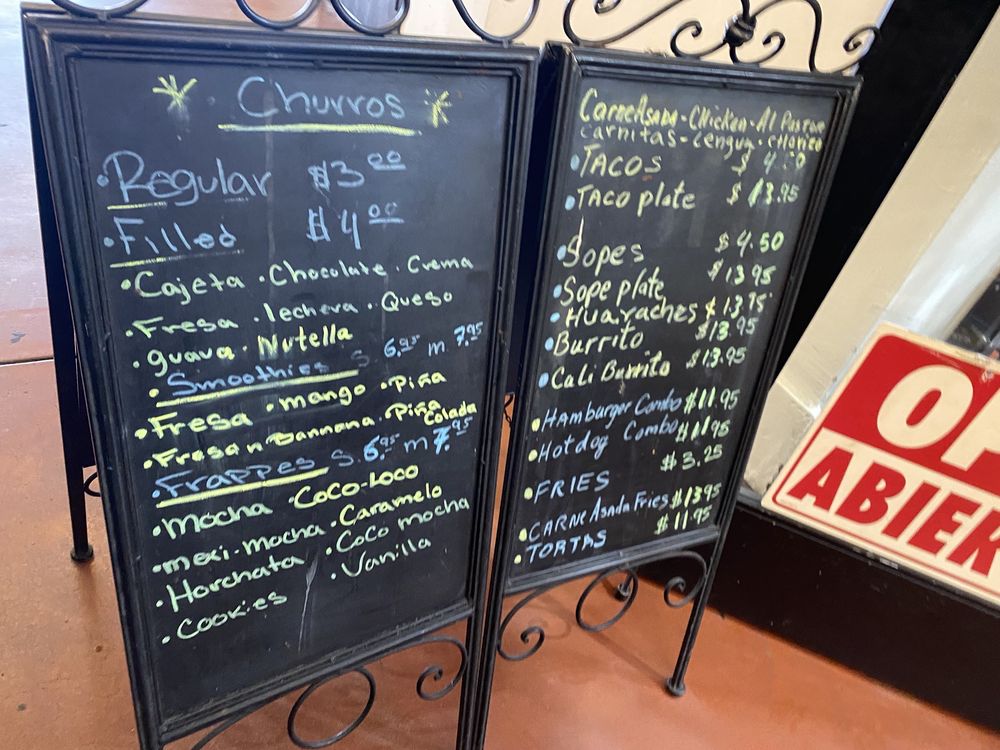 Churros
Regular $3.00
Filled $4.00
Cajeta . Chocolate . Crema
Fresa . lechera . Queso
guava . Nutella
Smoothies S. 6.95 m 7.95
Fresa . mango . Piña
Fresa n Bannana . Piña Colada
Frappes S. 6.95 m 7.95
Mocha . Coco-Loco
mexi-mocha . Caramelo
Horchata . Coco mocha
Cookies . Vanilla
CarneAsada - Chicken - Al Pastor
carnitas - Lengua - chorizo
TACOS
TACO plate $13.95
Sopes $4.50
Sope plate $13.95
Huaraches $13.95
Burrito $13.95
Cali Burrito $13.95
HAMburger Combo $11.95
Hotdog Combo $11.95
FRIES $3.25
CARNE Asada Fries $13.95
TORTAS $11.95
ABIER